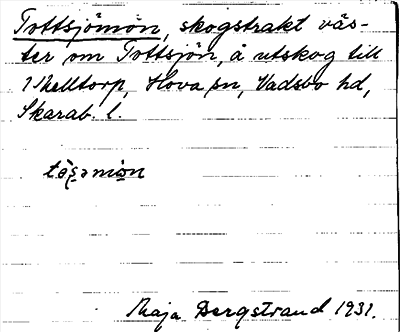 Tottsjömön, skogstrakt väs-
ter om Tottsjön, å utskog till
Melltorp, Hova sn, Vadsbo hd,
Skarab. l.
Maja Bergstrand 1931.